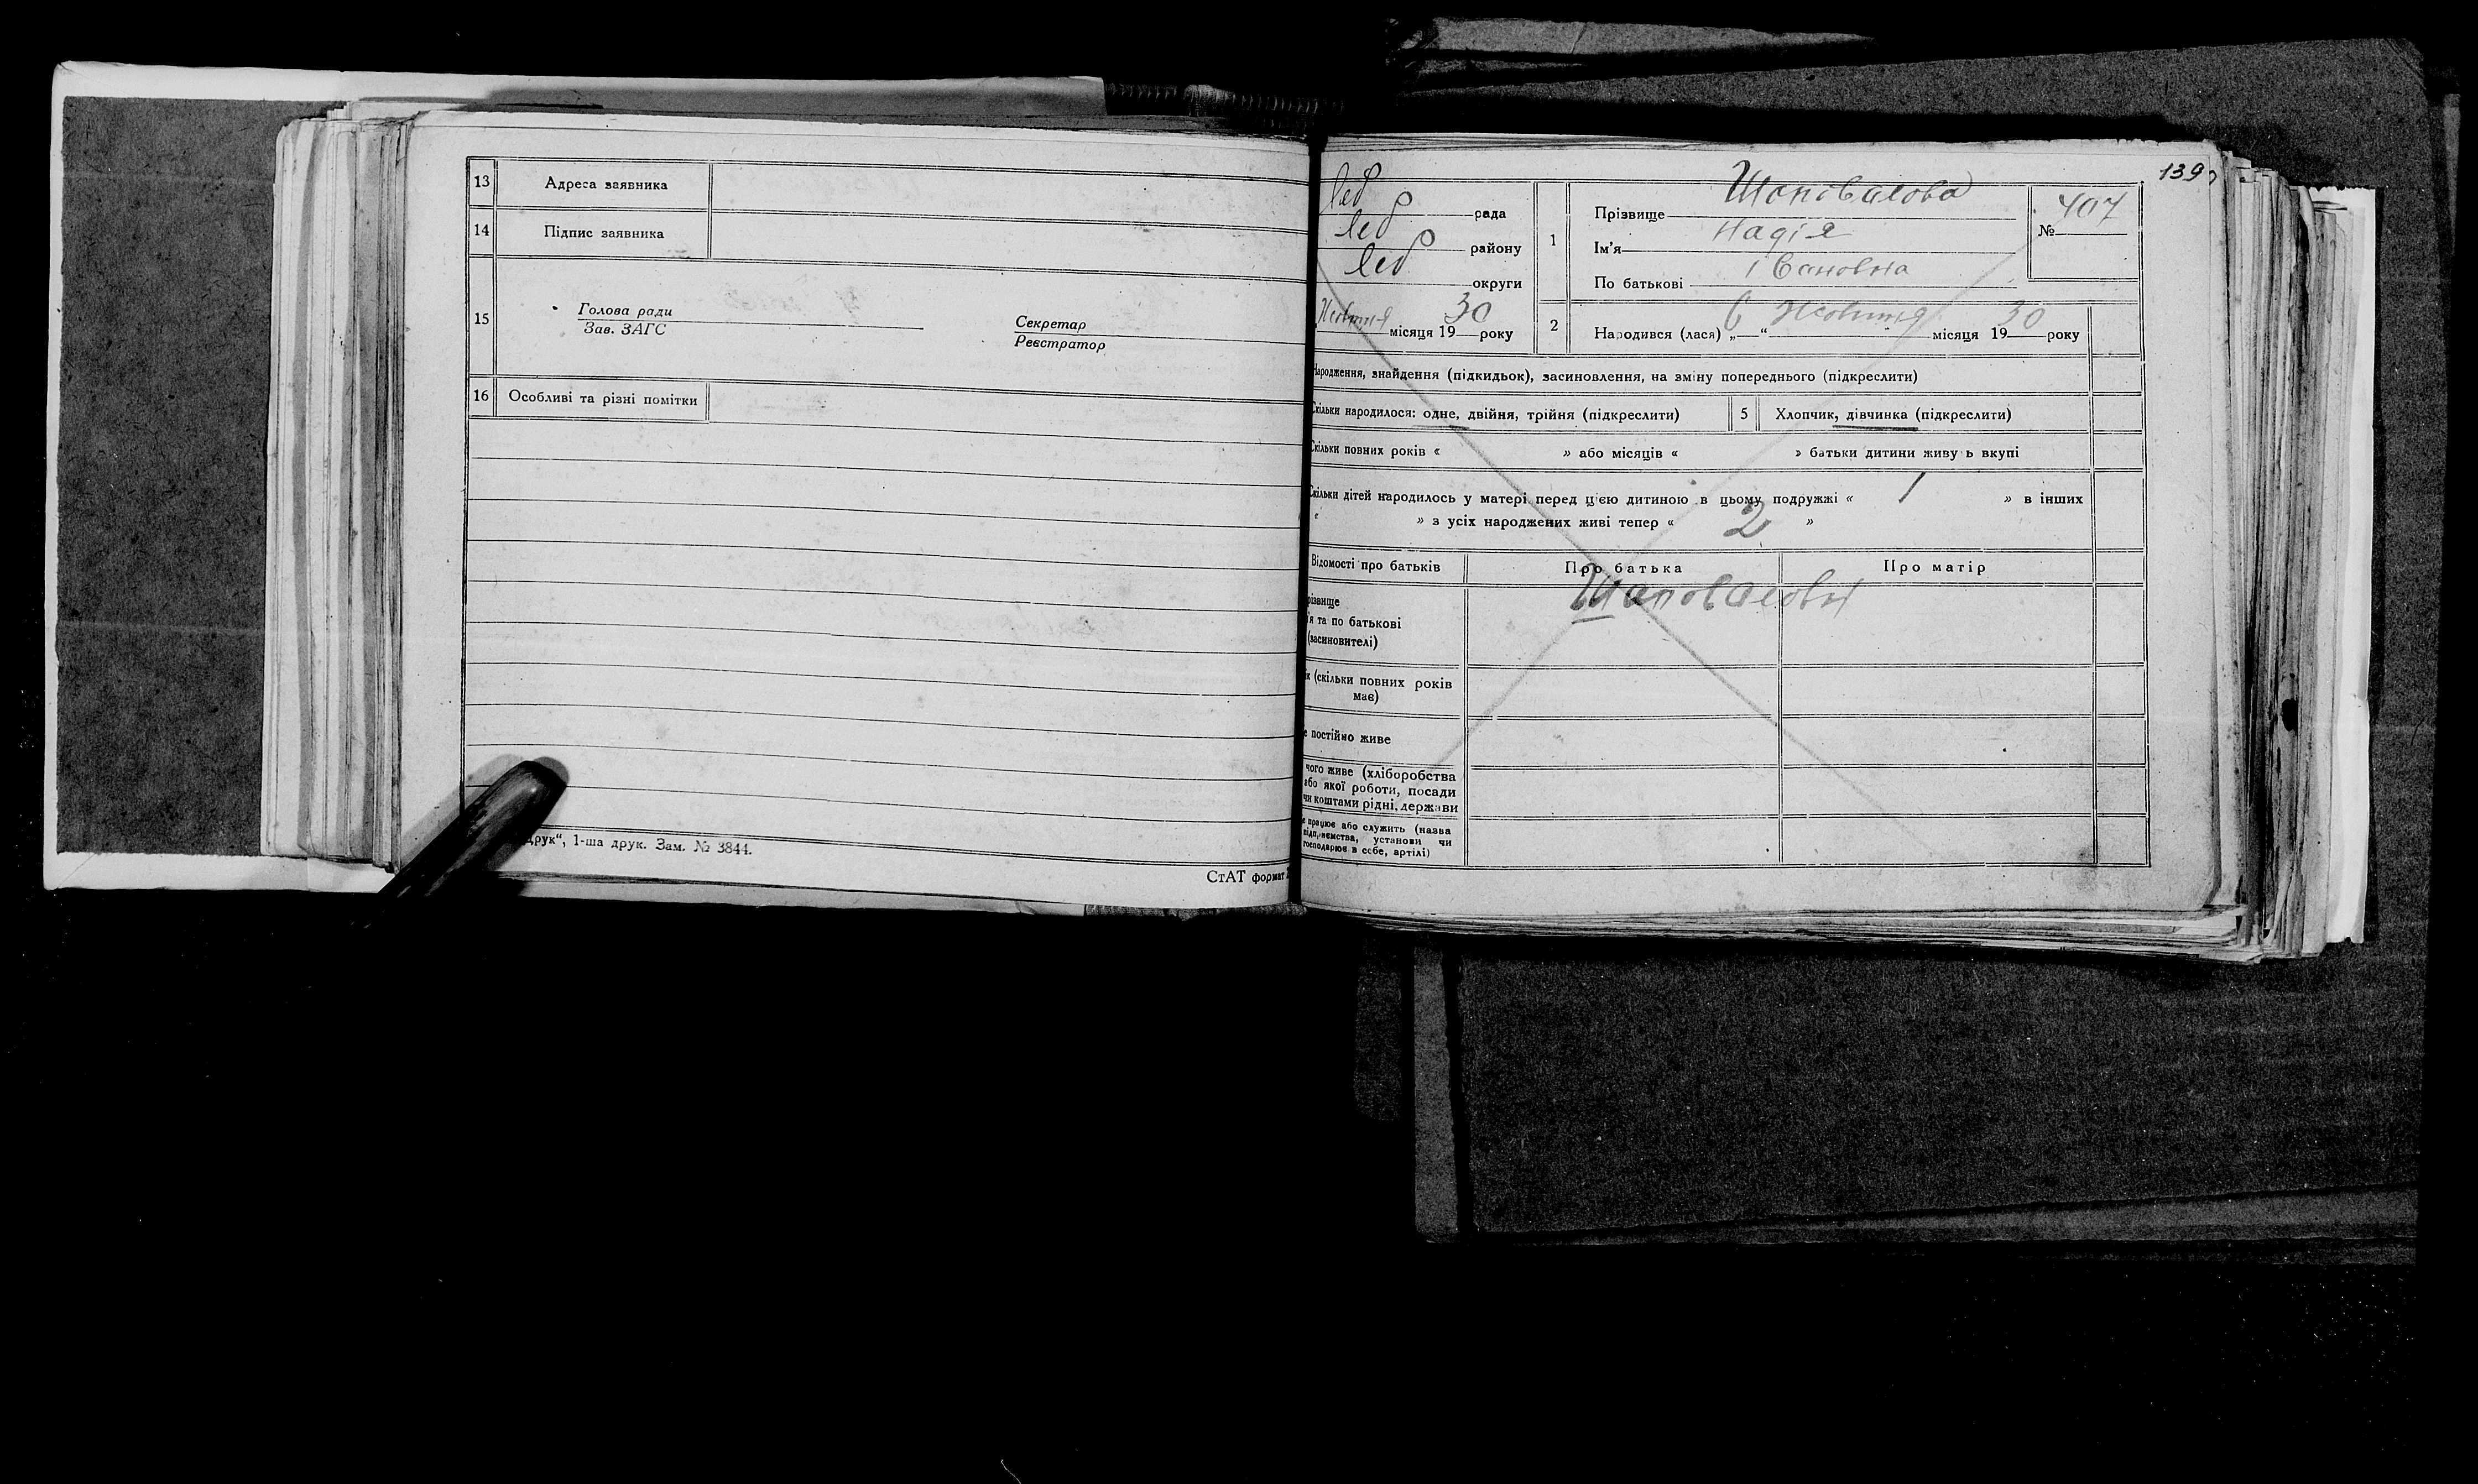 13 Адреса заявника
14 Підпис заявника
15 Голова ради
Зав. ЗАГС
Секретар
Реєстратор
16 Особливі та різні помітки
друк“, 1-ша друк. Зам. № 3844.
СтАТ формат
139
Леб рада
Леб району
Леб округи
Жовтня місяця 1930 року
1 Прізвище Шаповалова
Ім'я Надія
По батькові Івановна
№ 407
2 Народився (лася) „6“ Жовтня місяця 1930 року
Народження, знайдення (підкидьок), засиновлення, на зміну попереднього (підкреслити)
Скільки народилося: одне, двійня, трійня (підкреслити) 5 Хлопчик, дівчинка (підкреслити)
Скільки повних років « » або місяців « » батьки дитини живу ь вкупі
Скільки дітей народилось у матері перед цією дитиною в цьому подружжі « 1 » в інших
« » з усіх народжених живі тепер « 2 »
Відомості про батьків Про батька Про матір
різвище
я та по батькові
(засиновителі)
Шаповалови
к (скільки повних років
має)
е постійно живе
чого живе (хліборобства
або якої роботи, посади
чи коштами рідні, держави
е працює або служить (назва
підприємства, установи чи
господарює в себе, артілі)